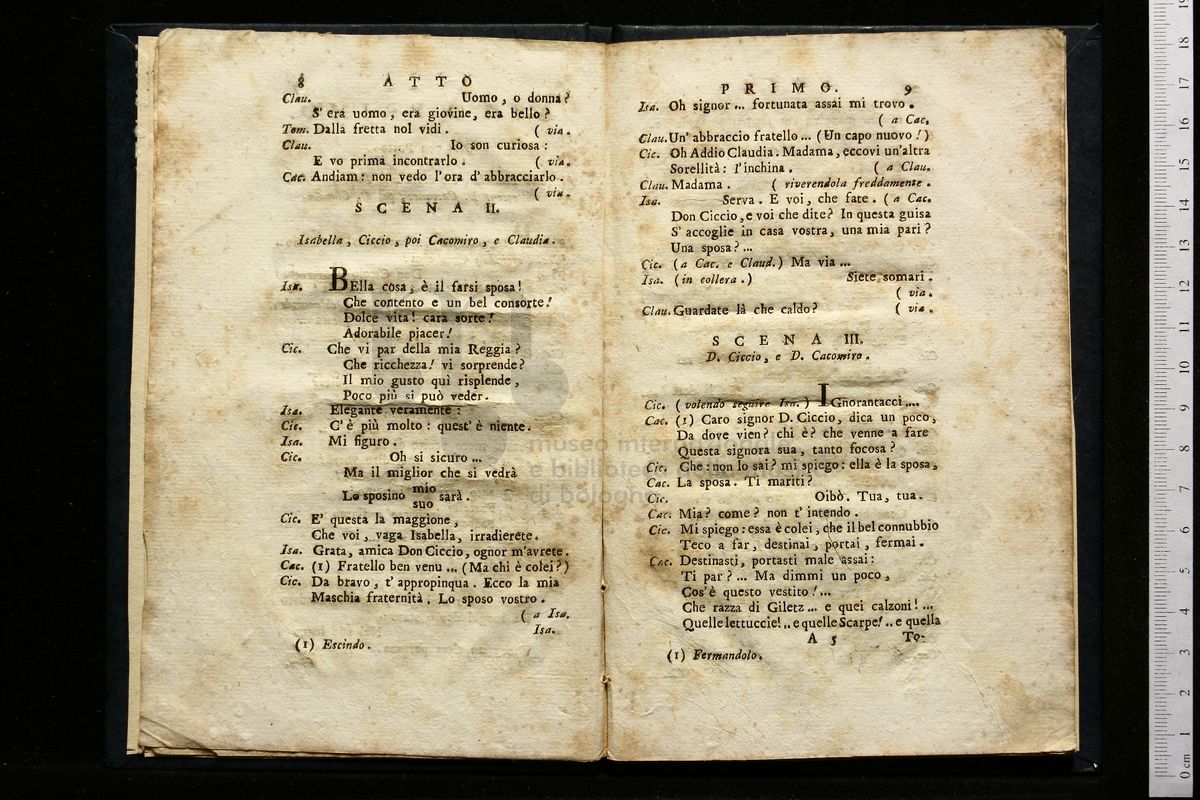 8 ATTO
Clau. Uomo, o donna?
S' era uomo, era giovine, era bello?
Tom. Dalla fretta nol vidi. ( via.
Clau. Io son curiosa:
E vo prima incontrarlo. ( via.
Cac. Andiam: non vedo l'ora d'abbracciarlo.
( via.
SCENA II.
Isabella, Ciccio, poi Cacomiro, e Claudia.
Isa. BElla cosa, è il farsi sposa!
Che contento e un bel consorte!
Dolce vita! cara sorte!
Adorabile piacer!
Cic. Che vi par della mia Reggia?
Che ricchezza! vi sorprende?
Il mio gusto quì risplende,
Poco più si può veder.
Isa. Elegante veramente:
Cic. C'è più molto: quest' è niente.
Isa. Mi figuro.
Cic. Oh si sicuro ...
Ma il miglior che si vedrà
mio
Lo sposino sarà.
suo
Cic. E' questa la maggione,
Che voi, vaga Isabella, irradierete.
Isa. Grata, amica Don Ciccio, ognor m'avrete.
Cac. (1) Fratello ben venu ... (Ma chi è colei?)
Cic. Da bravo, t' appropinqua. Ecco la mia
Maschia fraternità. Lo sposo vostro.
( a Isa.
Isa.
(1) Escindo.
PRIMO. 9
Isa. Oh signor ... fortunata assai mi trovo.
( a Cac.
Clau. Un' abbraccio fratello ... (Un capo nuovo!)
Cic. Oh Addio Claudia. Madama, eccovi un'altra
Sorellità: l'inchina. ( a Clau.
Clau. Madama. ( riverendola freddamente.
Isa. Serva. E voi, che fate. ( a Cac.
Don Ciccio, e voi che dite? In questa guisa
S' accoglie in casa vostra, una mia pari?
Una sposa? ...
Cic. (a Cac. e Claud.) Ma via ...
Isa. (in collera.) Siete somari.
( via.
Clau. Guardate là che caldo? ( via.
SCENA III.
D. Ciccio, e D. Cacomiro.
Cic. (volendo seguire Isa.) IGnorantacci....
Cac. (1) Caro signor D. Ciccio, dica un poco,
Da dove vien? chi è? che venne a fare
Questa signora sua, tanto focosa?
Cic. Che: non lo sai? mi spiego: ella è la sposa,
Cac. La sposa. Ti mariti?
Cic. Oibò. Tua, tua.
Cac. Mia? come? non t' intendo.
Cic. Mi spiego: essa è colei, che il bel connubbio
Teco a far, destinai, portai, fermai.
Cac. Destinasti, portasti male assai:
Ti par? ... Ma dimmi un poco,
Cos'è questo vestito! ...
Che razza di Giletz ... e quei calzoni! ...
Quelle lettuccie! .. e quelle Scarpe! .. e quella
A 5 To-
(1) Fermandolo.
museo internazionale
e biblioteca
di bologna
0 cm 1 2 3 4 5 6 7 8 9 10 11 12 13 14 15 16 17 18 19